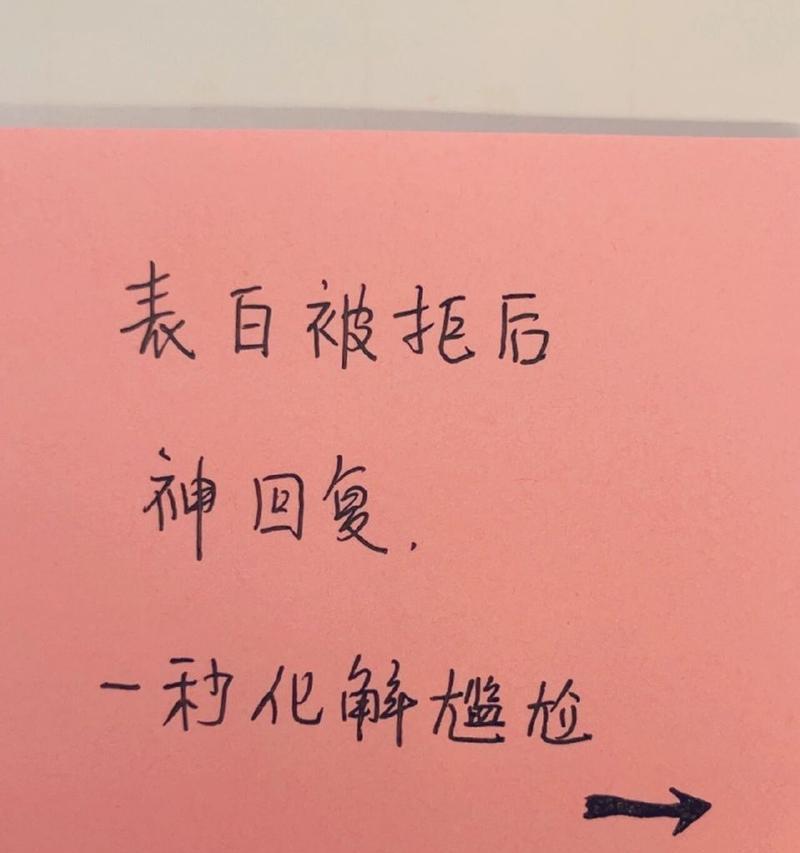 表白被拒后
神回复.
一秒化解尴尬